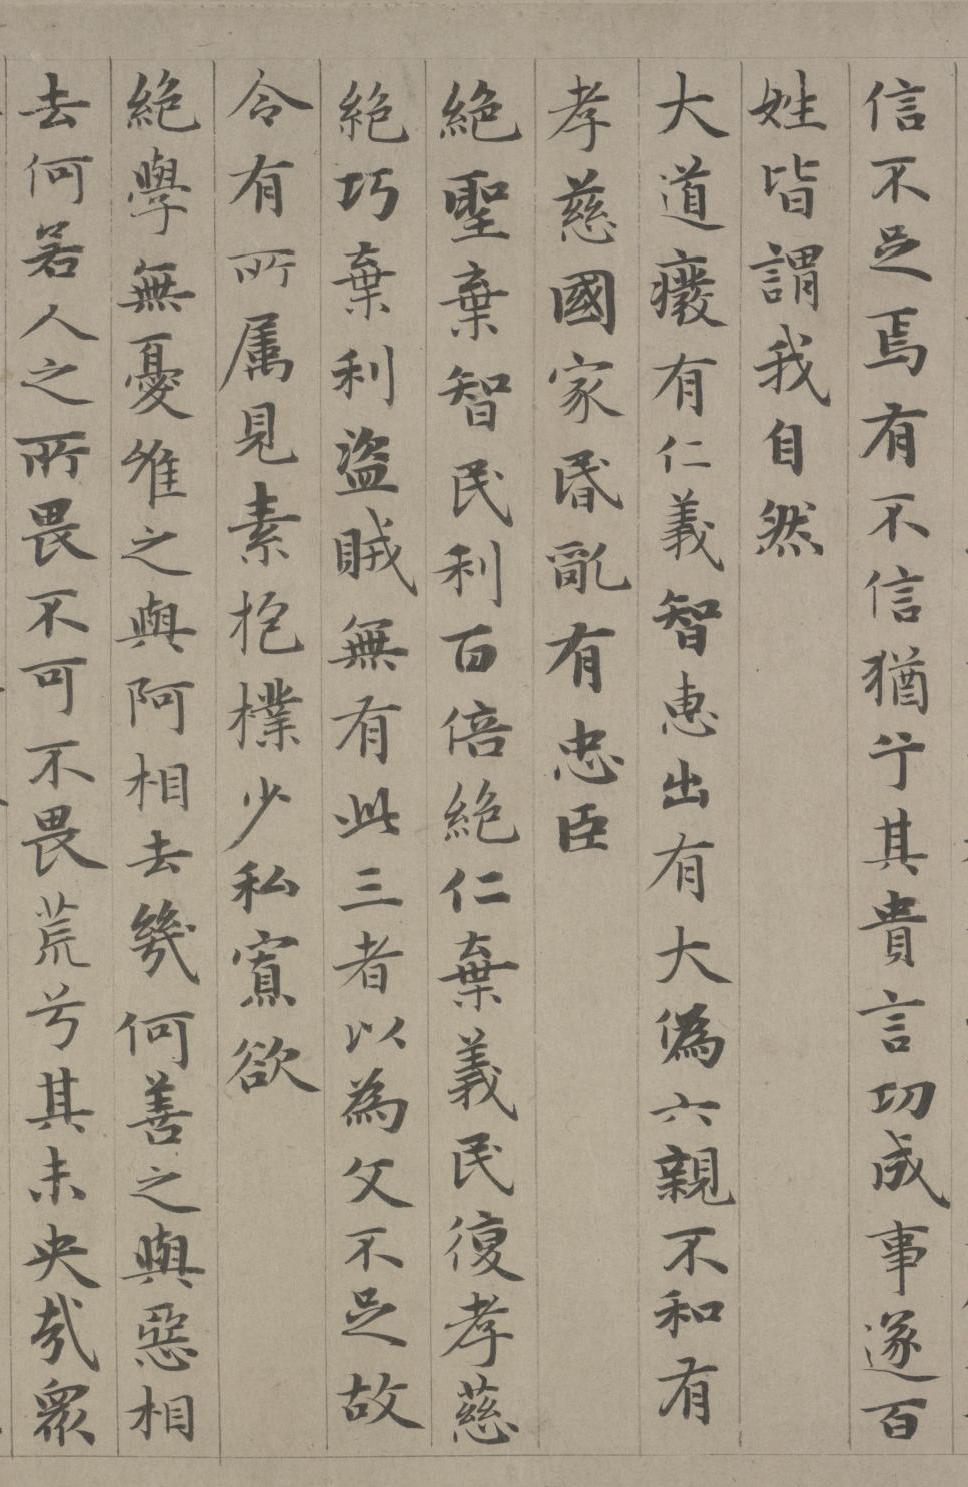 信不足焉有不信猶兮其貴言功成事遂百
姓皆謂我自然
大道癈有仁義智惠出有大偽六親不和有
孝慈國家昬亂有忠臣
絕聖棄智民利百倍絕仁棄義民復孝慈
絕巧棄利盜賊無有此三者以為文不足故
令有所属見素抱樸少私寡欲
絕學無憂唯之與阿相去幾何善之與惡相
去何若人之所畏不可不畏荒兮其未央哉衆